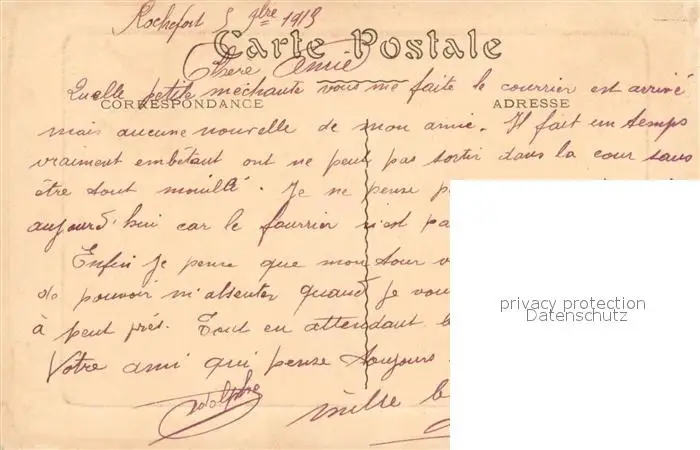 Rochefort 5 9bre 1913
Carte Postale
Chère Amie
Quelle petite méchante vous me faite le courrier est arrivé
CORRESPONDANCE
ADRESSE
mais aucune nouvelle de mon amie. Il fait un temps
vraiment embêtant ont ne peut pas sortir dans la cour sans
être tout mouillé. Je ne pense
aujourd'hui car le fourrier n'est pas
Enfin je pense que mon tour
de pouvoir m'absenter quand je vous
à peut près. Tout en attendant
Votre ami qui pense toujours
Adolphe
mille
privacy protection
Datenschutz